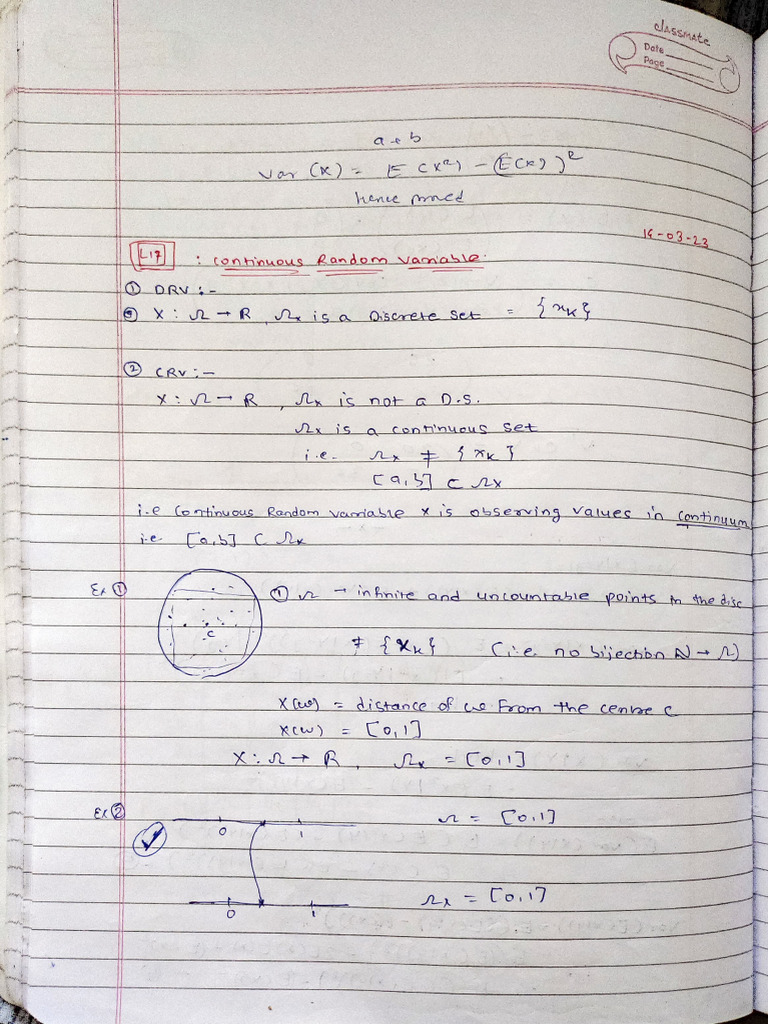 classmate
Date
Page
a + b
var (x) = E (x²) - (E(x))²
hence proved
14-03-23
L17 : Continuous Random Variable
① DRV :-
X : Ω → R, Ωx is a Discrete set = {xk}
② CRV :-
X : Ω → R, Ωx is not a D.S.
Ωx is a continuous set
i.e. Ωx ≠ {xk}
[a,b] ⊂ Ωx
i.e Continuous Random variable x is observing values in continuum
i.e [a,b] ⊂ Ωx
Ex ① ① Ω → infinite and uncountable points in the disc
C ≠ {xk} (i.e. no bijection N → Ω)
X(ω) = distance of ω from the centre C
X(ω) = [0,1]
X : Ω → R, Ωx = [0,1]
Ex ② 0 1 Ω = [0,1]
0 1 Ωx = [0,1]